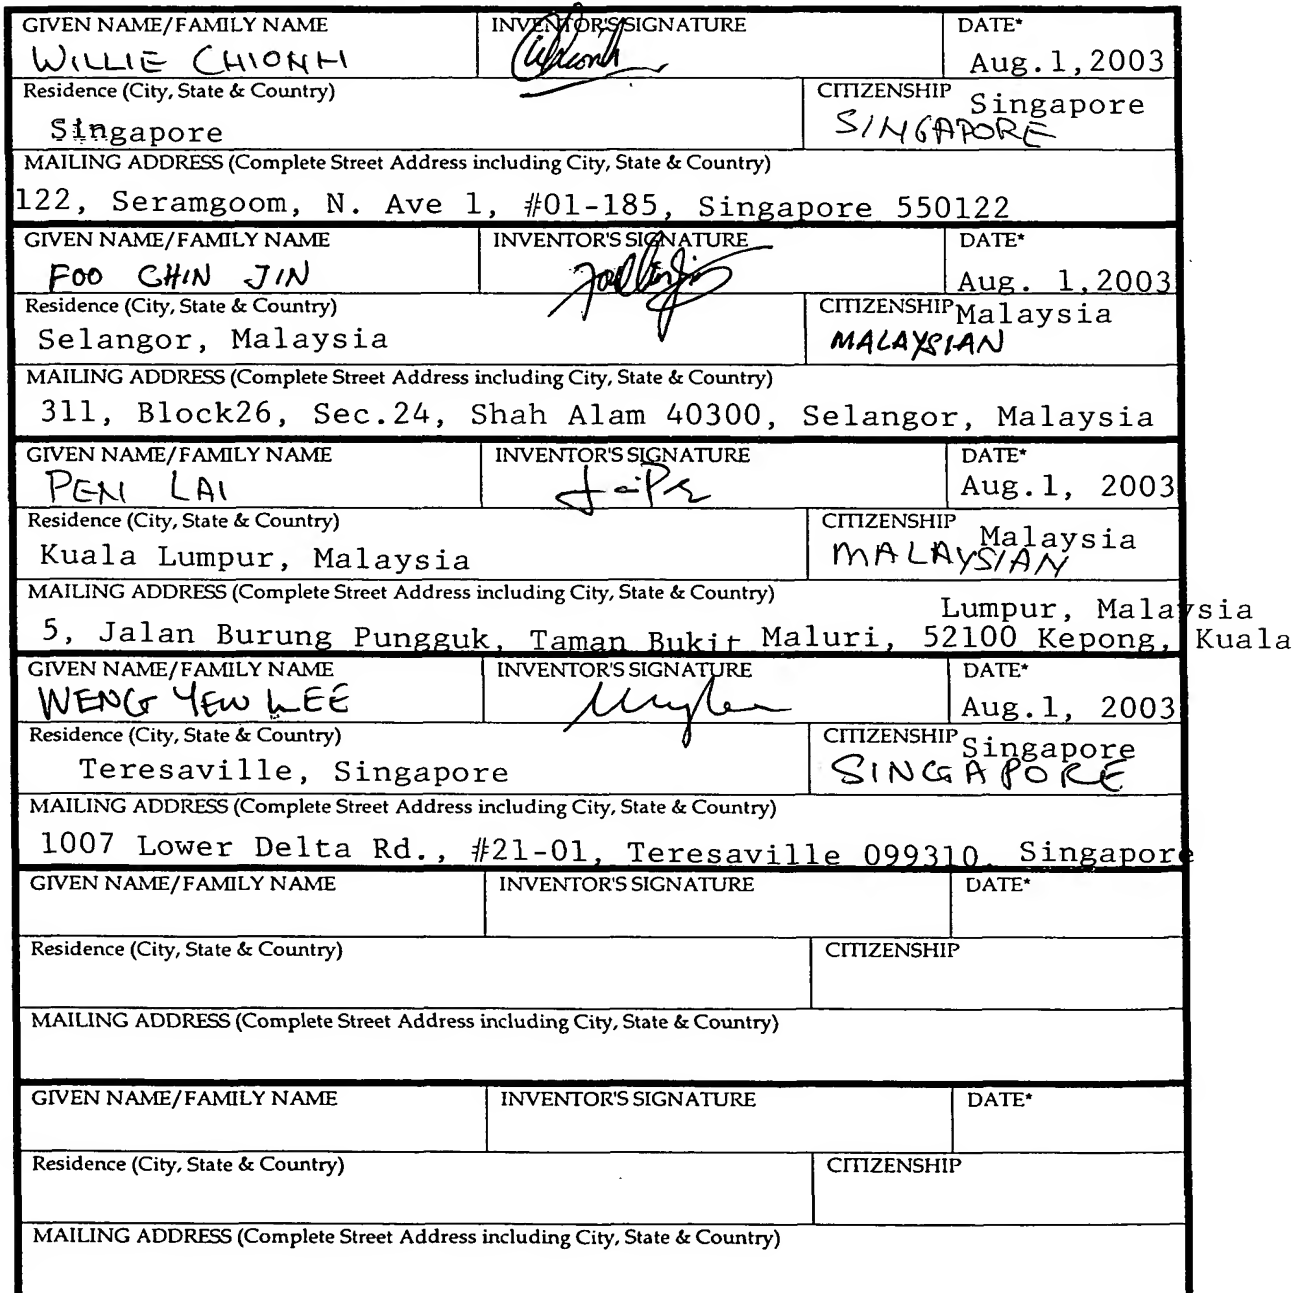 GIVEN NAME/FAMILY NAME INVENTOR'S SIGNATURE DATE*
WILLIE CHIONH Aug.1,2003
Residence (City, State & Country) CITIZENSHIP Singapore
Singapore SINGAPORE
MAILING ADDRESS (Complete Street Address including City, State & Country)
122, Seramgoom, N. Ave 1, #01-185, Singapore 550122
GIVEN NAME/FAMILY NAME INVENTOR'S SIGNATURE DATE*
FOO CHIN JIN Aug. 1,2003
Residence (City, State & Country) CITIZENSHIP Malaysia
Selangor, Malaysia MALAYSIAN
MAILING ADDRESS (Complete Street Address including City, State & Country)
311, Block26, Sec.24, Shah Alam 40300, Selangor, Malaysia
GIVEN NAME/FAMILY NAME INVENTOR'S SIGNATURE DATE*
PEN LAI Aug.1, 2003
Residence (City, State & Country) CITIZENSHIP Malaysia
Kuala Lumpur, Malaysia MALAYSIAN
MAILING ADDRESS (Complete Street Address including City, State & Country)
Lumpur, Malaysia
5, Jalan Burung Pungguk, Taman Bukit Maluri, 52100 Kepong, Kuala
GIVEN NAME/FAMILY NAME INVENTOR'S SIGNATURE DATE*
WENG YEW LEE Aug.1, 2003
Residence (City, State & Country) CITIZENSHIP Singapore
Teresaville, Singapore SINGAPORE
MAILING ADDRESS (Complete Street Address including City, State & Country)
1007 Lower Delta Rd., #21-01, Teresaville 099310, Singapore
GIVEN NAME/FAMILY NAME INVENTOR'S SIGNATURE DATE*
Residence (City, State & Country) CITIZENSHIP
MAILING ADDRESS (Complete Street Address including City, State & Country)
GIVEN NAME/FAMILY NAME INVENTOR'S SIGNATURE DATE*
Residence (City, State & Country) CITIZENSHIP
MAILING ADDRESS (Complete Street Address including City, State & Country)